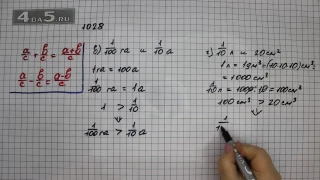 4AO5.RU
1028
a/c + b/c = (a+b)/c
a/c - b/c = (a-b)/c
б) 1/100 га и 1/10 а
1 га = 100 а
1/100 га = 1 а
1 > 1/10
⇓
1/100 га > 1/10 а
1/10 л и 20 см³
1 л = 1 дм³ = (10·10·10) см³ =
= 1000 см³
1/10 л = 1000 : 10 = 100 см³
100 см³ > 20 см³
⇓
1